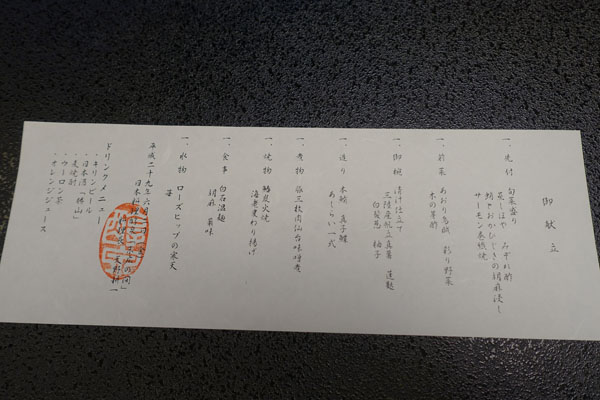 御献立
一、先付 旬菜盛り
蒸しほや みぞれ酢
蛸やおかひじきの胡麻浸し
サーモン奉書焼
一、前菜 あおり烏賊 彩り野菜
木の芽酢
一、御椀 清汁仕立て
三陸産帆立真薯 蓮麩
白髪葱 柚子
一、造り 本鮪 真子鰈
あしらい一式
一、煮物 豚三枚肉仙台味噌煮
一、焼物
海老変わり揚げ
一、食事 白石温麺
胡麻 薬味
一、水物 ローズヒップの寒天
苺
平成二十九年六月
日本料理
ドリンクメニュー
・キリンビール
・日本酒「勝山」
・麦焼酎
・ウーロン茶
・オレンジジュース